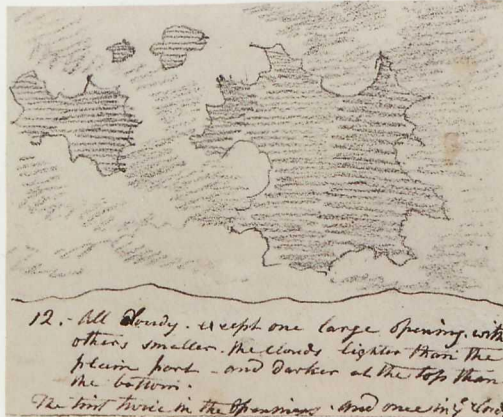 12. - All Cloudy. except one large opening, with
others smaller. the clouds lighter than the
plain part - and darker at the top than
the bottom.
The tint twice in the Openning. and once in ye